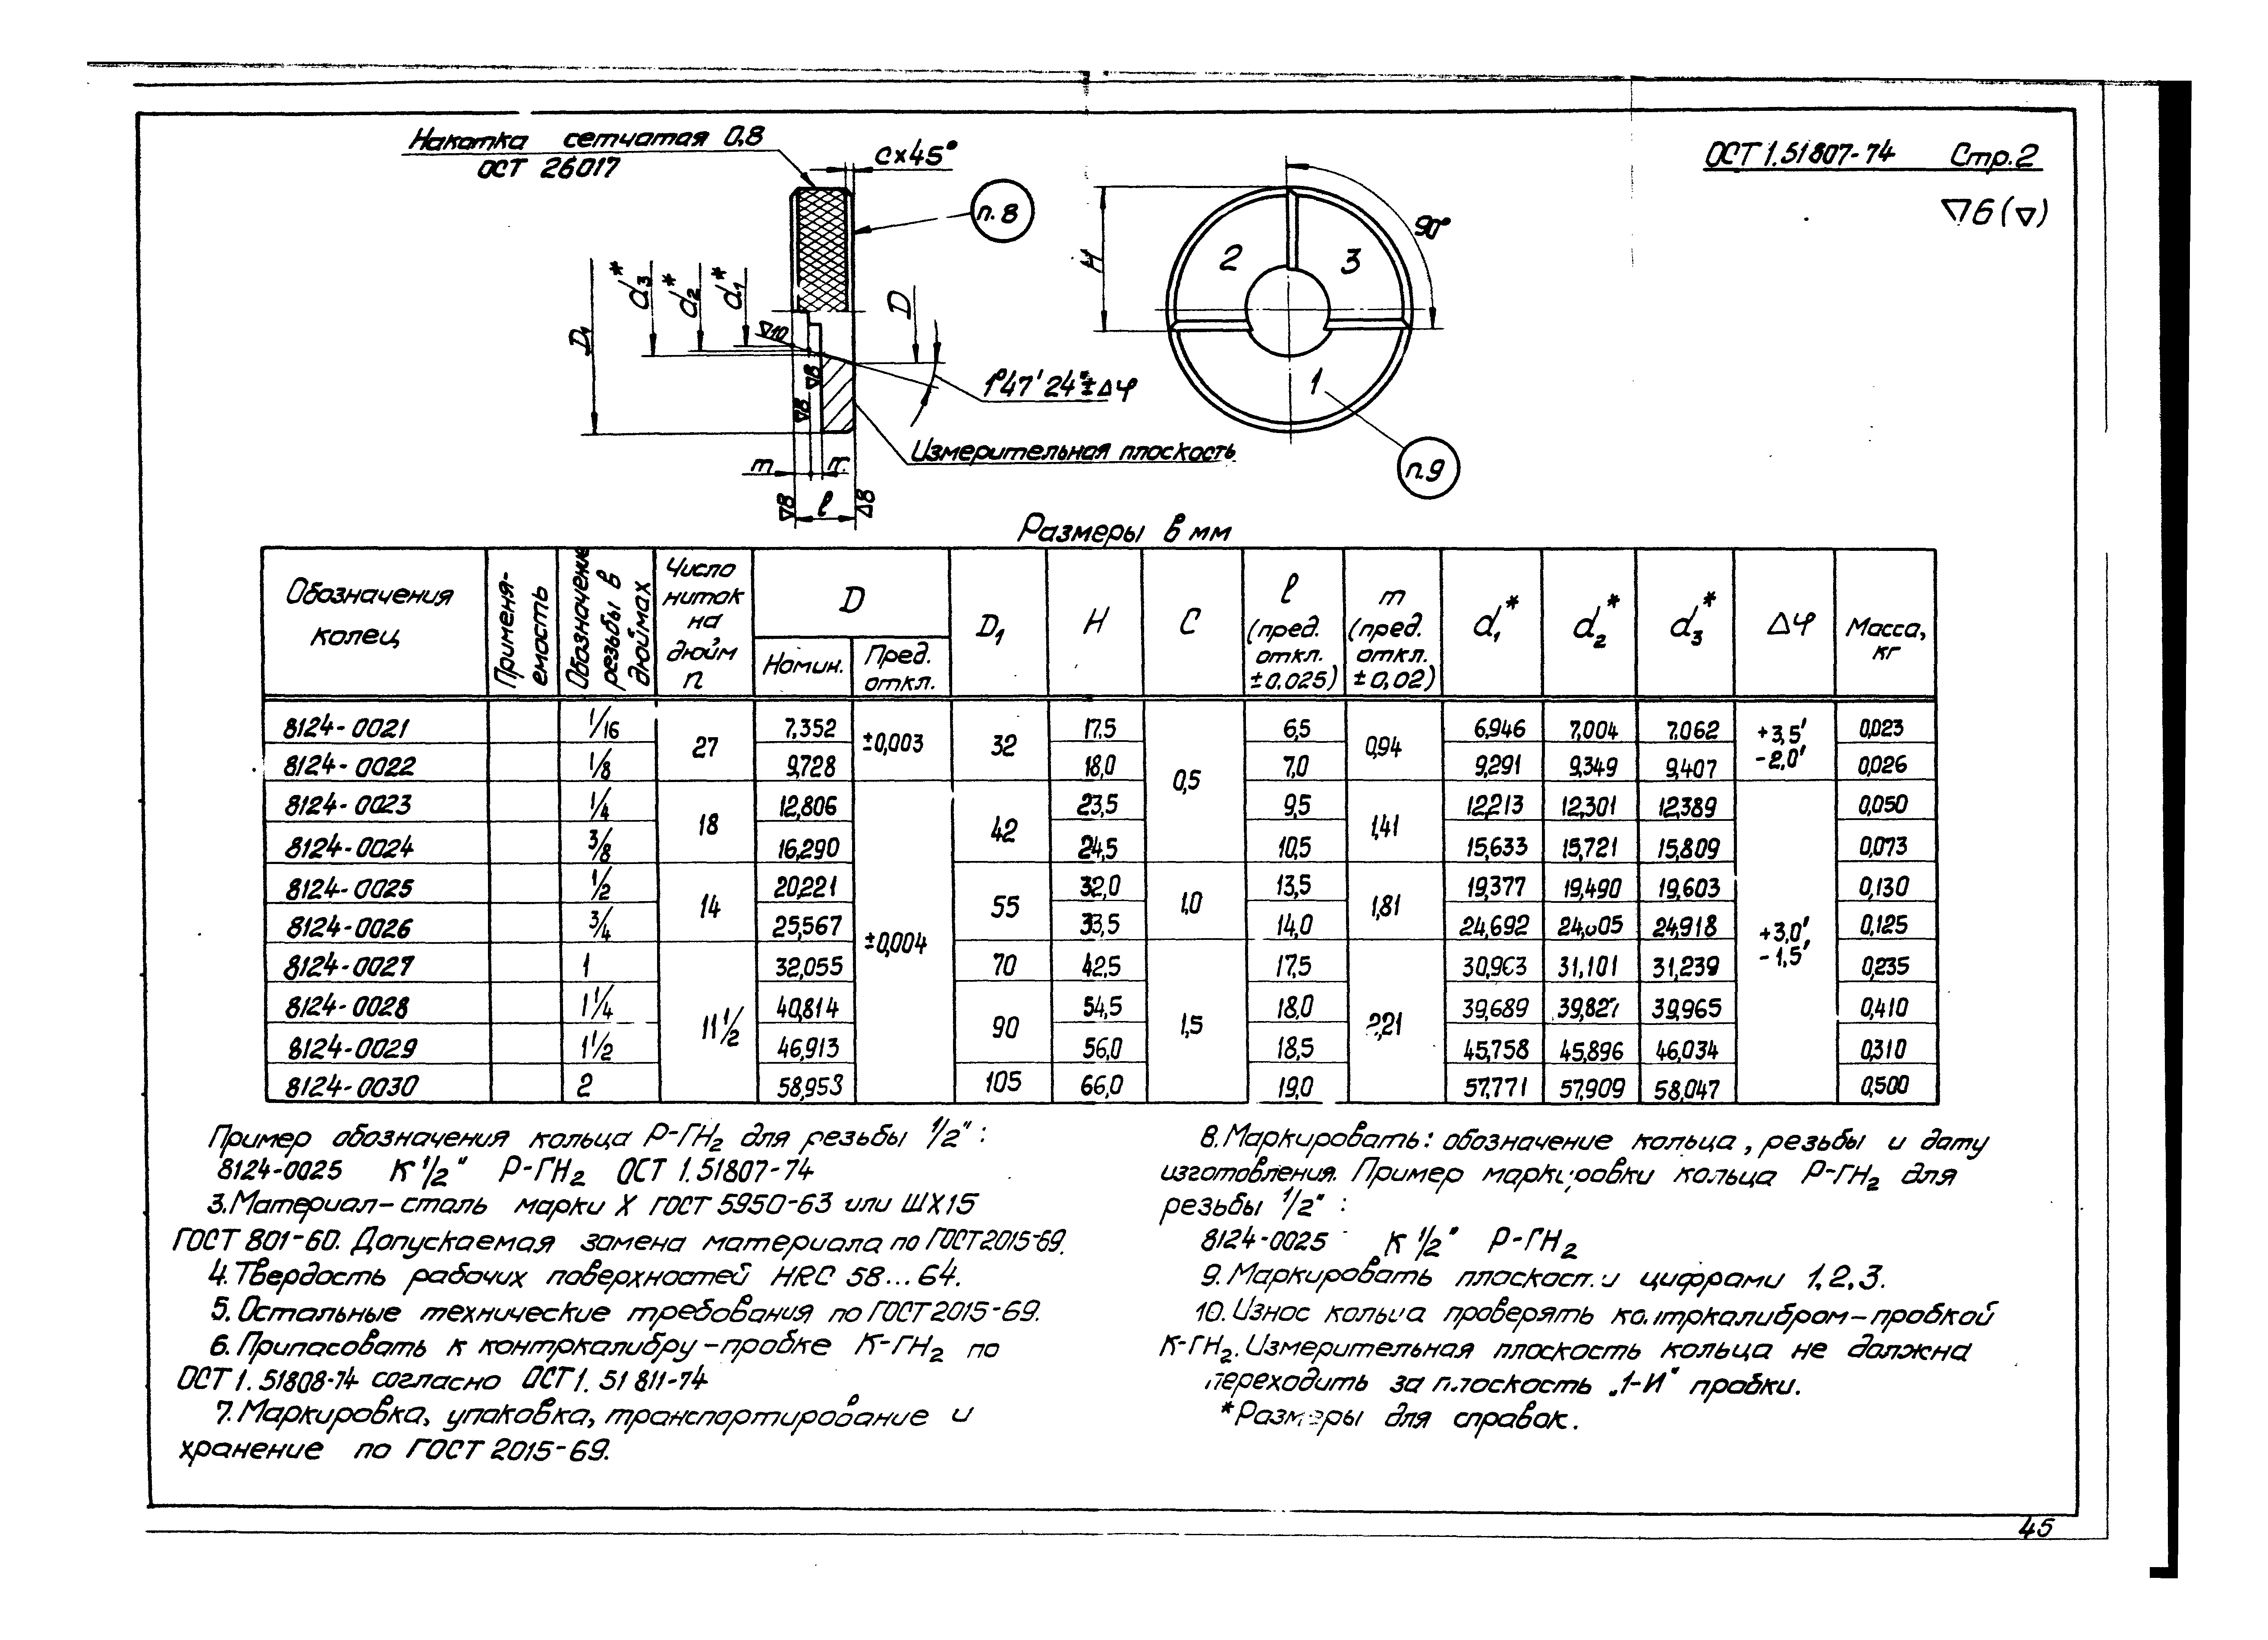 Накатка сетчатая 0,8
ОСТ 26017
с×45°
п.8
ОСТ 1.51807-74 Стр.2
▽6 (▽)
90°
H
2
3
1
п.9
D₁
d₃*
d₂*
d₁*
D
▽10
▽8
▽8
1°47′24″±Δφ
Измерительная плоскость
m
m
▽8
l
▽8
Размеры в мм
Обозначения колец
Применяемость
Обозначение резьбы в дюймах
Число ниток на дюйм n
D
Номин.
Пред. откл.
D₁
H
C
l (пред. откл. ±0,025)
m (пред. откл. ±0,02)
d₁*
d₂*
d₃*
Δφ
Масса, кг
8124-0021 1/16 27 7,352 ±0,003 32 17,5 0,5 6,5 0,94 6,946 7,004 7,062 +3,5′ -2,0′ 0,023
8124-0022 1/8 9,728 18,0 7,0 9,291 9,349 9,407 0,026
8124-0023 1/4 18 12,806 ±0,004 42 23,5 9,5 1,41 12,213 12,301 12,389 +3,0′ -1,5′ 0,050
8124-0024 3/8 16,290 24,5 10,5 15,633 15,721 15,809 0,073
8124-0025 1/2 14 20,221 55 32,0 1,0 13,5 1,81 19,377 19,490 19,603 0,130
8124-0026 3/4 25,567 33,5 14,0 24,692 24,918 0,125
8124-0027 1 11 1/2 32,055 70 42,5 1,5 17,5 30,963 31,101 31,239 0,235
8124-0028 1 1/4 40,814 90 54,5 18,0 39,689 39,827 39,965 0,410
8124-0029 1 1/2 46,913 56,0 18,5 45,758 45,896 46,034 0,310
8124-0030 2 58,953 105 66,0 19,0 57,771 57,909 58,047 0,500
Пример обозначения кольца Р-ГН₂ для резьбы 1/2″:
8124-0025 К 1/2″ Р-ГН₂ ОСТ 1.51807-74
3. Материал-сталь марки Х ГОСТ 5950-63 или ШХ15
ГОСТ 801-60. Допускаемая замена материала по ГОСТ 2015-69.
4. Твердость рабочих поверхностей HRC 58...64.
5. Остальные технические требования по ГОСТ 2015-69.
6. Припасовать к контркалибру-пробке К-ГН₂ по
ОСТ 1. 51808-74 согласно ОСТ 1. 51 811-74
7. Маркировка, упаковка, транспортирование и
хранение по ГОСТ 2015-69.
8. Маркировать: обозначение кольца, резьбы и дату
изготовления. Пример маркировки кольца Р-ГН₂ для
резьбы 1/2″:
8124-0025 К 1/2″ Р-ГН₂
9. Маркировать плоскости цифрами 1,2,3.
10. Износ кольца проверять контркалибром-пробкой
К-ГН₂. Измерительная плоскость кольца не должна
переходить за плоскость „1-И″ пробки.
*Размеры для справок.
45